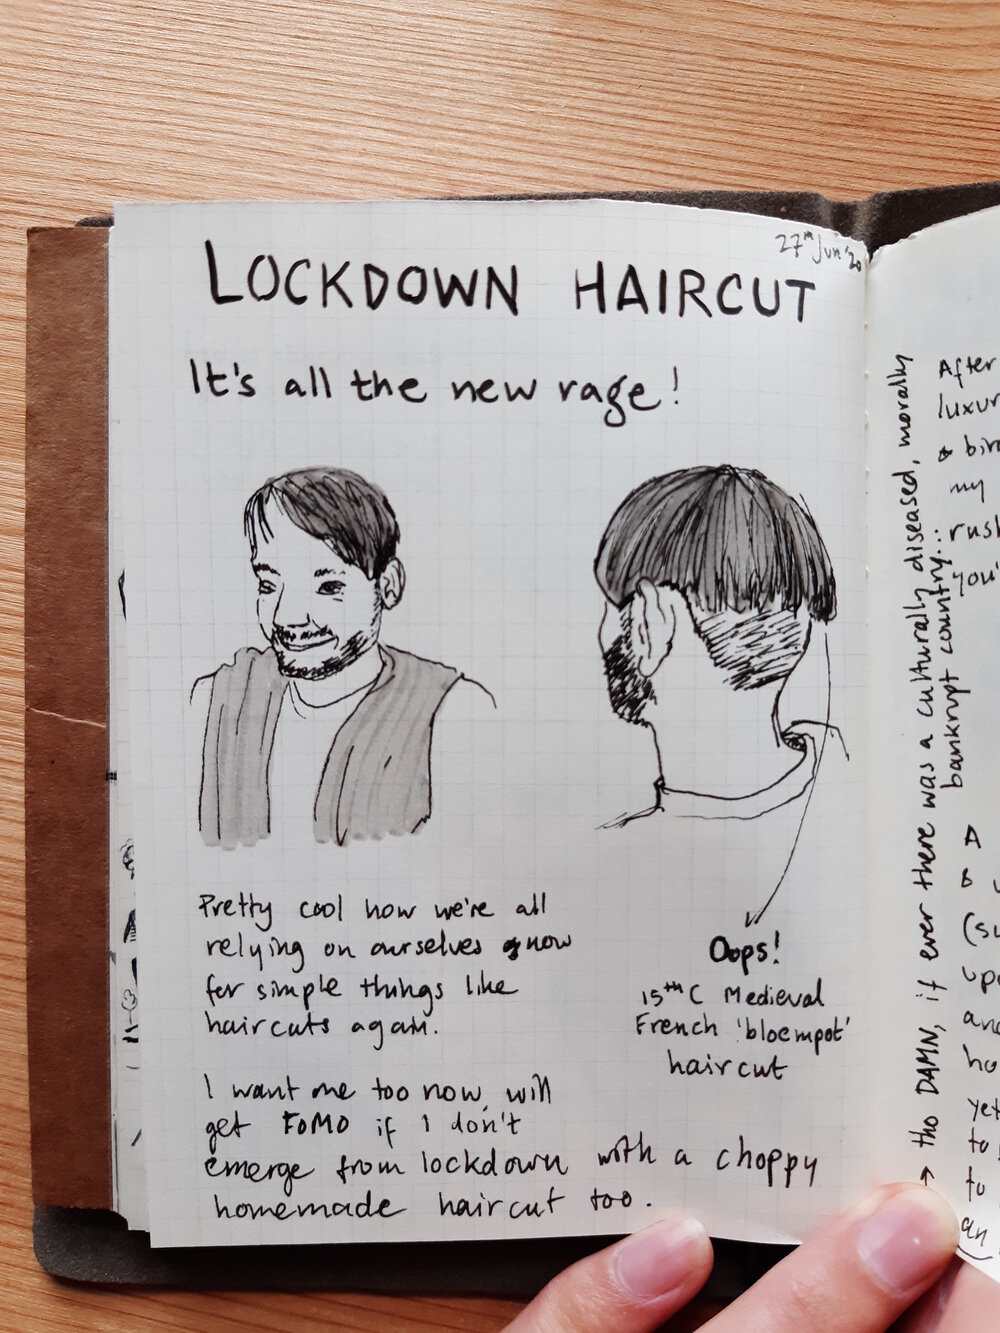 27th Jun '20
LOCKDOWN HAIRCUT
It's all the new rage!
Pretty cool how we're all
relying on ourselves now
for simple things like
haircuts again.
I want me too now, will
get FOMO if I don't
emerge from lockdown with a choppy
homemade haircut too.
Oops!
15th C Medieval
French 'bloempot'
haircut
→ tho DAMN, if ever there was a culturally diseased, morally
bankrupt country...
After
luxur
& bird
my
rush
you'
A
&
(su
upo
and
ho
yet
to
to
an